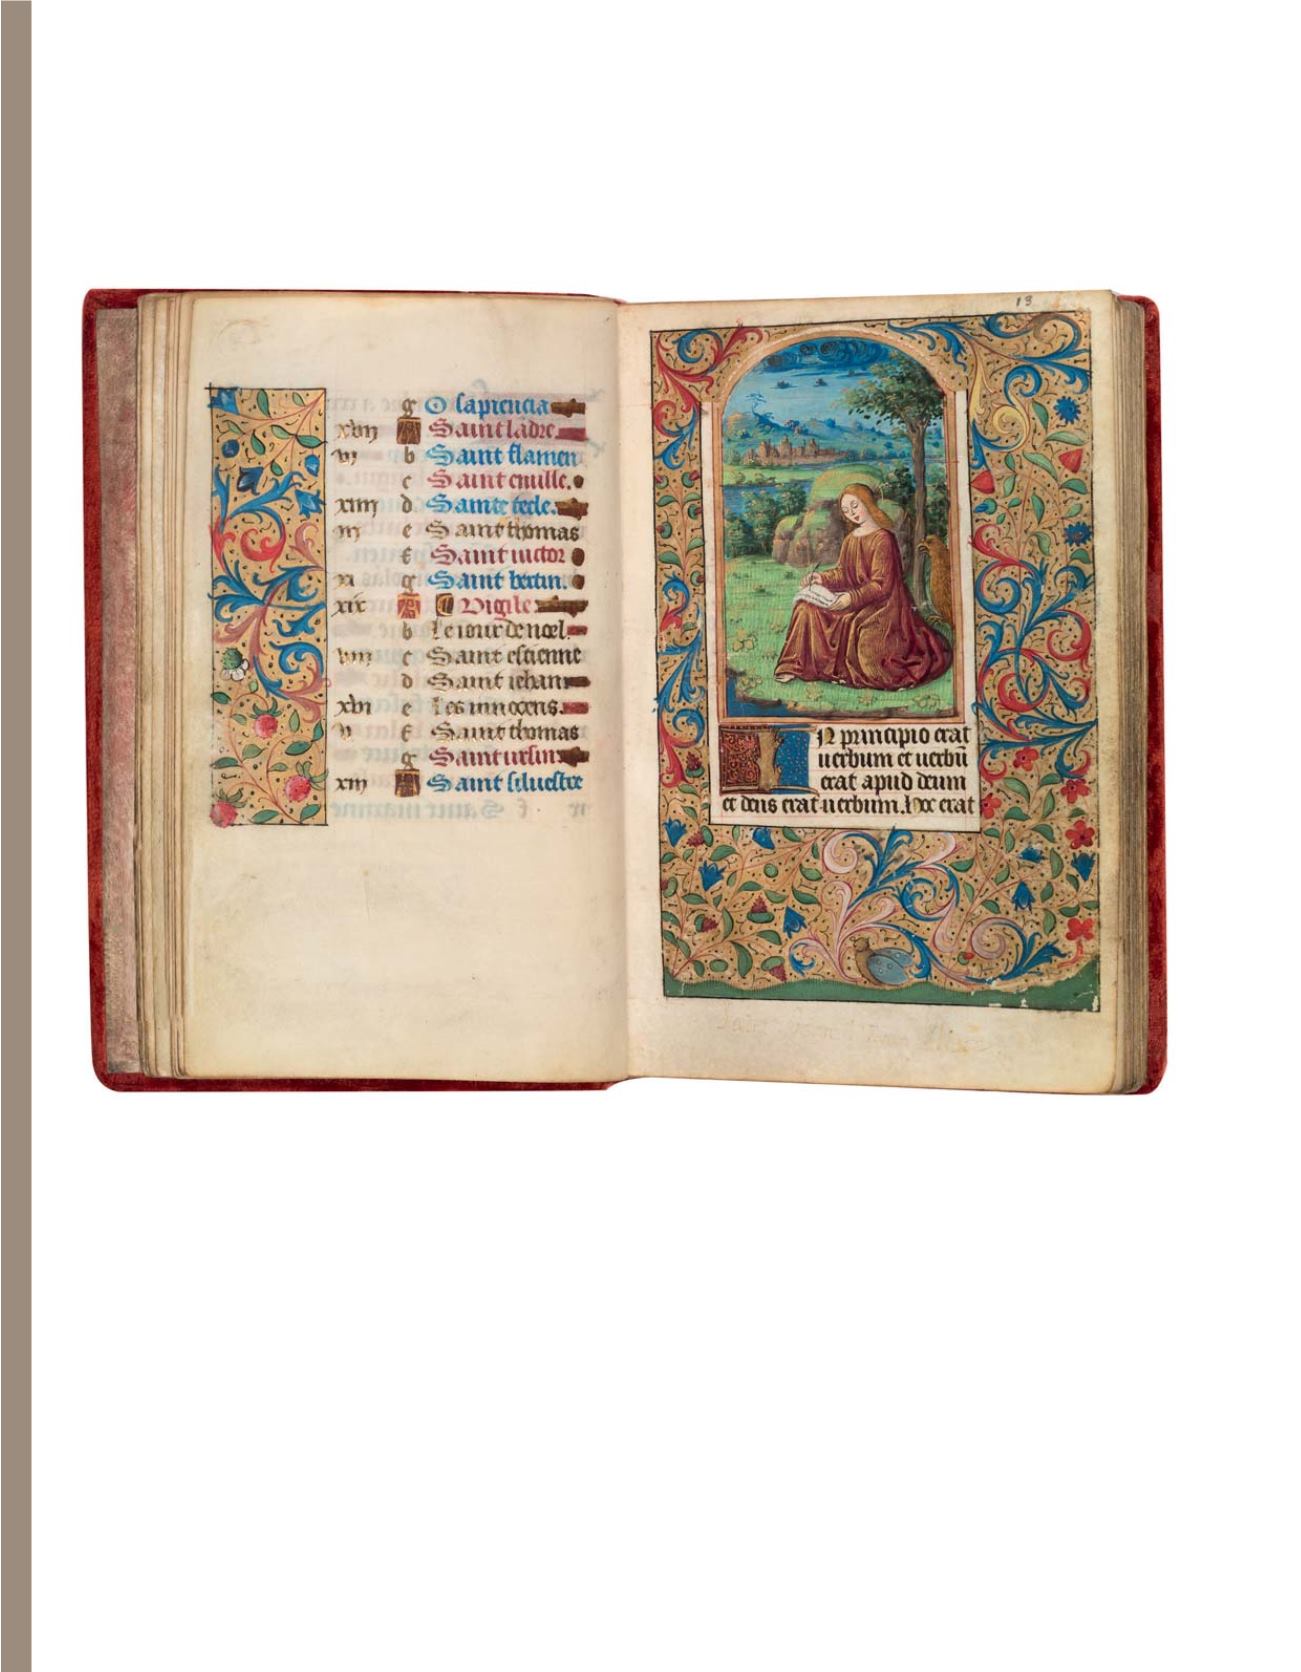 g O sapiencia
xvii A Saint ladre
vi b Saint flamen
c Saint
xiiii d Sainte tecle.
iii e Saint thomas
f Saint victor
xi g Saint bertin.
xix A Vigile
b Le iour de noel.
viii c Saint estienne
d Saint iehan
xvi e Les innocens.
v f Saint thomas
g Saint ursin
xiii A Saint silvestre
13
IN principio erat
uerbum et uerbū
erat apud deum
et deus erat uerbum. Hoc erat